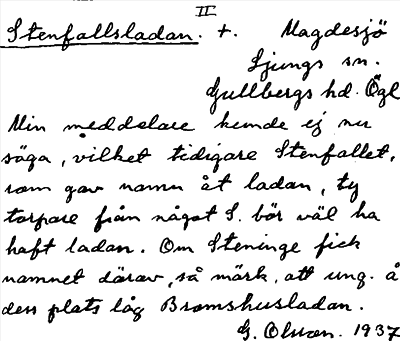 II
Stenfallsladan. +. Magdesjö
Ljungs sn.
Gullbergs hd. Ögl
Min meddelare kunde ej nu
säga, vilket tidigare Stenfallet,
som gav namn åt ladan, ty
torpare från något S. bör väl ha
haft ladan. Om Steninge fick
namnet därav, så märk, att ung. å
den plats låg Bromshusladan.
G. Olsson. 1937